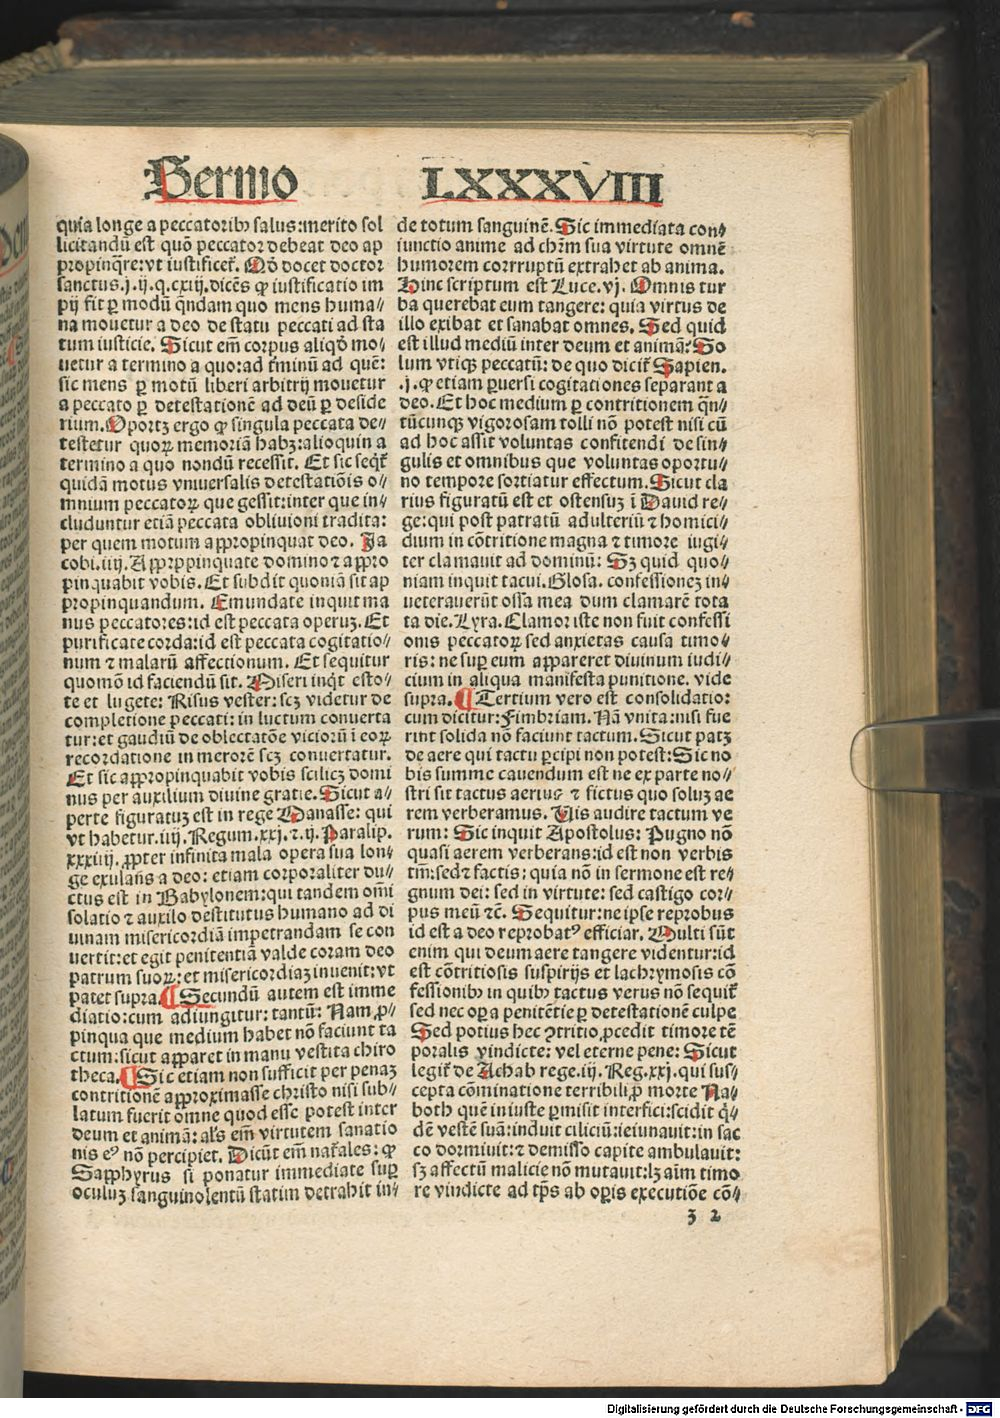 Sermo LXXXVIII
quia longe a peccatoribꝫ salus: merito sol
licitandū est quō peccator debeat deo ap
propinq̄re: vt iustificet̄. Qđ docet doctor
sanctus .j.ij.q.cxiij. dicēs ꝙ iustificatio im
pij fit ꝑ modū q̄ndam quo mens huma⸗
na mouetur a deo de statu peccati ad sta
tum iusticie. Sicut em̄ corpus aliqđ mo⸗
uetur a termino a quo: ad t̄minū ad quē:
sic mens ꝑ motū liberi arbitrij mouetur
a peccato ꝑ detestationē ad deū ꝑ deside
rium. Oportꝫ ergo ꝙ singula peccata de⸗
testetur quoꝝ memoriā habꝫ: alioquin a
termino a quo nondū recessit. Et sic seqt̄
quidā motus vniuersalis detestatiōis o⸗
mnium peccatoꝝ que gessit: inter que in⸗
cluduntur etiā peccata obliuioni tradita:
per quem motum appropinquat deo. Ja
cobi.iiij. Apprppinquate domino ⁊ appro
pinquabit vobis. Et subdit quoniā sit ap
propinquandum. Emundate inquit ma
nus peccatores: id est peccata operuꝫ. Et
purificate corda: id est peccata cogitatio⸗
num ⁊ malarū affectionum. Et sequitur
quomō id faciendū sit. Miseri inqt̄ esto⸗
te et lugete: Risus vester: scꝫ videtur de
completione peccati: in luctum conuerta
tur: et gaudiū de oblectatōe vicioꝝ ī eoꝝ
recordatione in merorē scꝫ conuertatur.
Et sic appropinquabit vobis scilicꝫ domi
nus per auxilium diuine gratie. Sicut a⸗
perte figuratuꝫ est in rege Manasse: qui
vt habetur .iiij. Regum.xxj. ⁊ .ij. Paralip.
xxxiij. ꝓpter infinita mala opera sua lon⸗
ge exulans a deo: etiam corporaliter du⸗
ctus est in Babylonem: qui tandem om̄i
solatio ⁊ auxilo destitutus humano ad di
uinam misericordiā impetrandam se con
uertit: et egit penitentiā valde coram deo
patrum suoꝝ: et misericordiaꝫ inuenit: vt
patet supra. ¶ Secundū autem est imme
diatio: cum adiungitur: tantū: Nam ꝓ⸗
pinqua que medium habet nō faciunt ta
ctum: sicut apparet in manu vestita chiro
theca. ¶ Sic etiam non sufficit per penaꝫ
contritionē approximasse christo nisi sub⸗
latum fuerit omne quod esse potest inter
deum et animā: al̄s em̄ virtutem sanatio
nis eꝰ nō percipiet. Dicūt em̄ nat̄ales: ꝙ
Sapphyrus si ponatur immediate suꝑ
oculuꝫ sanguinolentū statim detrahit in⸗
de totum sanguinē. Sic immediata con⸗
iunctio anime ad chr̄m sua virtute omnē
humorem corrruptū extrahet ab anima.
Hinc scriptum est Luce.vj. Omnis tur
ba querebat eum tangere: quia virtus de
illo exibat et sanabat omnes. Sed quid
est illud mediū inter deum et animā: So
lum vtiqꝫ peccatū: de quo dicit̄ Sapien.
.j. ꝙ etiam ꝑuersi cogitationes separant a
deo. Et hoc medium ꝑ contritionem q̄n⸗
tūcunqꝫ vigorosam tolli nō potest nisi cū
ad hoc assit voluntas confitendi de sin⸗
gulis et omnibus que voluntas oportu⸗
no tempore sortiatur effectum. Sicut cla
rius figuratū est et ostensuꝫ ī Dauid re⸗
ge: qui post patratū adulteriū ⁊ homici⸗
dium in cōtritione magna ⁊ timore iugi⸗
ter clamauit ad dominū: Sꝫ quid quo⸗
niam inquit tacui. Glosa. confessioneꝫ in⸗
ueterauerūt ossa mea dum clamarē tota
ta die. Lyra. Clamor iste non fuit confessi
onis peccatoꝝ sed anxietas causa timo⸗
ris: ne suꝑ eum appareret diuinum iudi⸗
cium in aliqua manifesta punitione. vide
supra. ¶ Tertium vero est consolidatio:
cum dicitur: Fimbriam. Nā vnita: nisi fue
rint solida nō faciunt tactum. Sicut patꝫ
de aere qui tactu ꝑcipi non potest: Sic no
bis summe cauendum est ne ex parte no⸗
stri sit tactus aerius ⁊ fictus quo soluꝫ ae
rem verberamus. Uis audire tactum ve
rum: Sic inquit Apostolus: Pugno nō
quasi aerem verberans: id est non verbis
tm̄: sed ⁊ factis: quia nō in sermone est re⸗
gnum dei: sed in virtute: sed castigo cor⸗
pus meū ⁊c̄. Sequitur: ne ipse reprobus
id est a deo reprobatꝰ efficiar. Multi sūt
enim qui deum aere tangere videntur: id
est cōtritiosis suspirijs et lachrymosis cō
fessionibꝫ in quibꝫ tactus verus nō sequit̄
sed nec oꝑa penitētie ꝑ detestationē culpe
Sed potius hec ꝯtritio ꝓcedit timore tē
poralis vindicte: vel eterne pene: Sicut
legit̄ de Achab rege.iij. Reg.xxj. qui sus⸗
cepta cōminatione terribili ꝓ morte Na⸗
both quē iniuste ꝑmisit interfici: scidit q̇⸗
dē vestē suā: induit ciliciū: ieiunauit: in sac
co dormiuit: ⁊ demisso capite ambulauit:
sꝫ affectū malicie nō mutauit: lꝫ aīm timo
re vindicte ad tp̄s ab oꝑis executiōe cō⸗
ꝫ 2
Digitalisierung gefördert durch die Deutsche Forschungsgemeinschaft - DFG